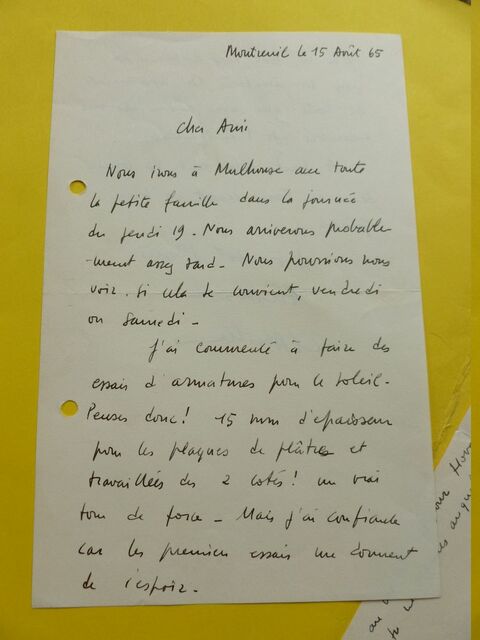 Montreuil le 15 Août 65
Cher Ami
Nous irons à Mulhouse avec toute
la petite famille dans la journée
du jeudi 19 - Nous arriverons probable
-ment assez tard - Nous pourrions nous
voir, si cela te convient, vendredi
ou samedi -
J'ai commencé à faire des
essais d'armatures pour le soleil -
Penses donc ! 15 mm d'épaisseur
pour les plaques de plâtre et
travaillées des 2 cotés ! un vrai
tour de force - Mais j'ai confiance
car les premiers essais me donnent
de l'espoir -
our